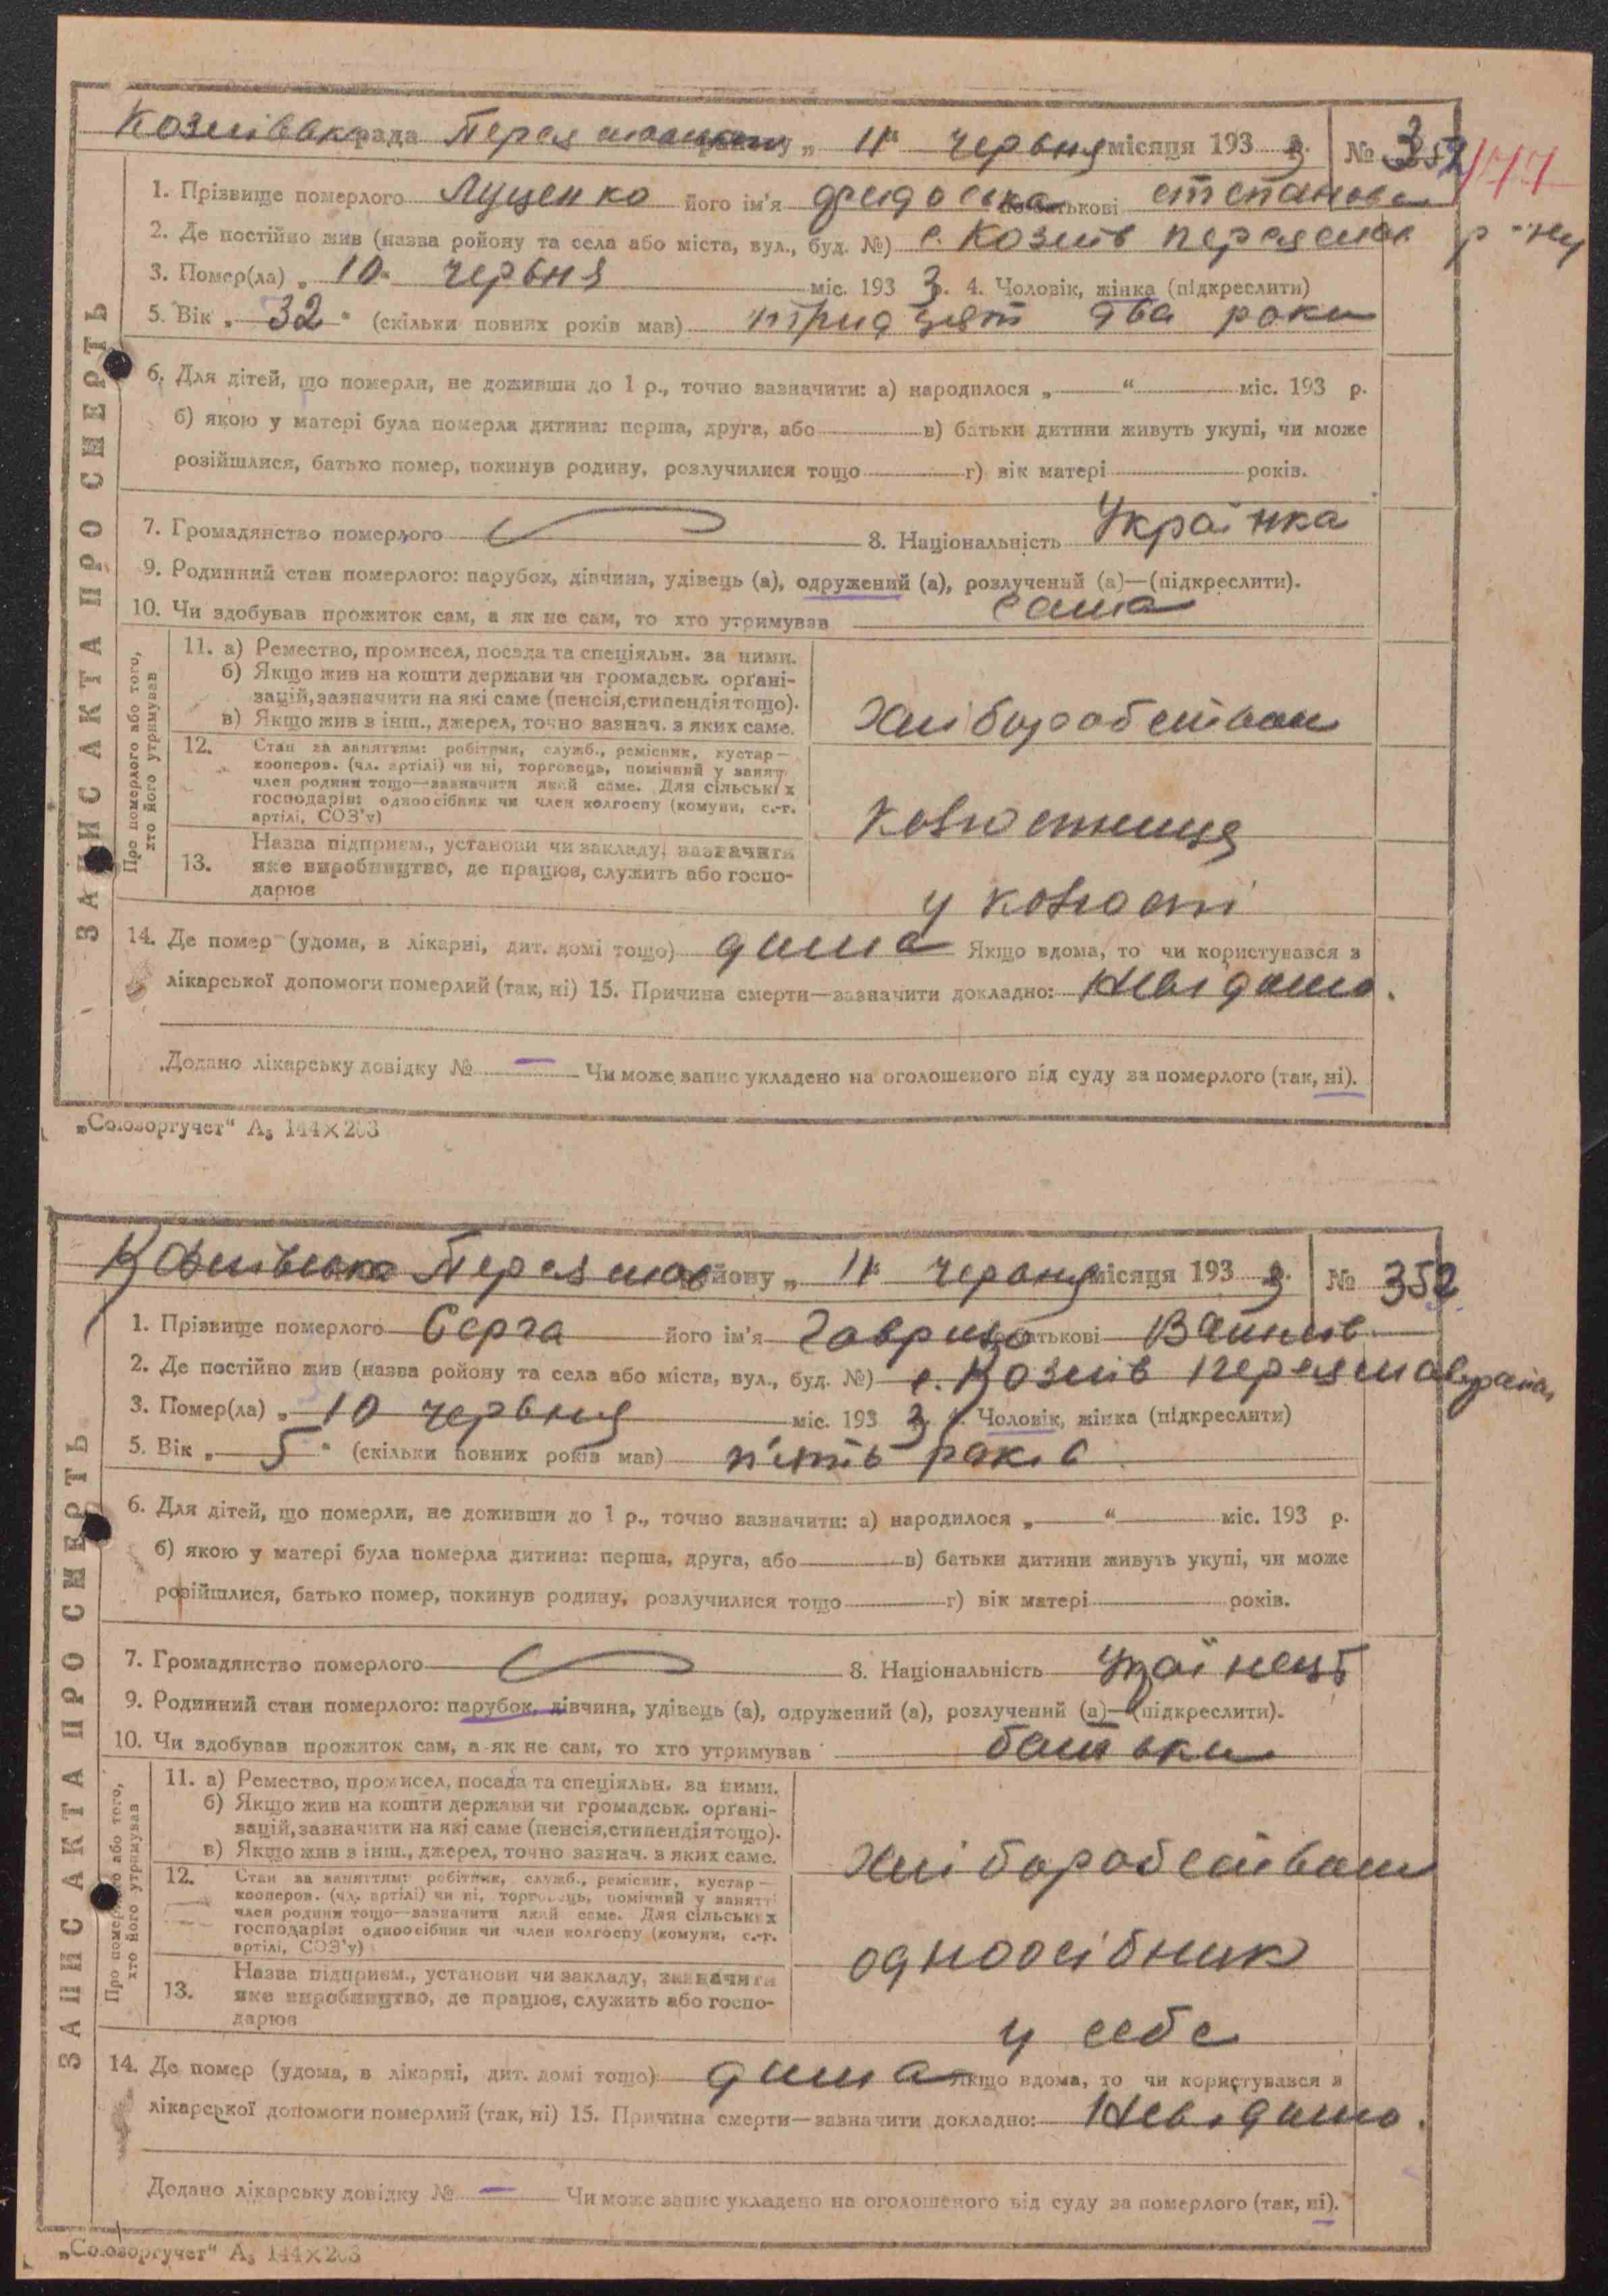 ЗАПИС АКТА ПРО СМЕРТЬ
рада „ 11 “ червня місяця 193 3 р. № 352
1. Прізвище померлого Луценко його ім'я по батькові степанова
2. Де постійно жив (назва району та села або міста, вул., буд. №) с. Козлів р-ну
3. Помер(ла) „ 10 “ червня міс. 193 3 р. 4. Чоловік, жінка (підкреслити)
5. Вік „ 32 “ (скільки повних років мав) тридцят два роки
6. Для дітей, що померли, не доживши до 1 р., точно зазначити: а) народилося „ — “ міс. 193 р.
б) якою у матері була померла дитина: перша, друга, або в) батьки дитини живуть укупі, чи може
розійшлися, батько помер, покинув родину, розлучилися тощо г) вік матері років.
7. Громадянство померлого 8. Національність Українка
9. Родинний стан померлого: парубок, дівчина, удівець (а), одружений (а), розлучений (а)—(підкреслити).
10. Чи здобував прожиток сам, а як не сам, то хто утримував сама
Про померлого або того, хто його утримував
11. а) Ремество, промисел, посада та спеціяльн. за ними.
б) Якщо жив на кошти держави чи громадськ. органі-
зацій, зазначити на які саме (пенсія, стипендія тощо).
в) Якщо жив з інш., джерел, точно зазнач. з яких саме.
Хліборобством
12. Стан за заняттям: робітник, служб., ремісник, кустар—
кооперов. (чл. артілі) чи ні, торговець, помічний у занят.
член родини тощо—зазначити який саме. Для сільських
господарів: одноосібник чи член колгоспу (комуни, с.-г.
артілі, СОЗ'у)
13. Назва підприєм., установи чи закладу, зазначити
яке виробництво, де працює, служить або госпо-
дарює
у
14. Де помер (удома, в лікарні, дит. домі тощо) дома Якщо вдома, то чи користувався з
лікарської допомоги померлий (так, ні) 15. Причина смерти—зазначити докладно: Невідомо.
Додано лікарську довідку № — Чи може запис укладено на оголошеного від суду за померлого (так, ні).
„Союзоргучет“ А₅ 144×203
ЗАПИС АКТА ПРО СМЕРТЬ
району „ 11 “ червня місяця 193 3 р. № 352
1. Прізвище померлого Серга його ім'я Гаврило по батькові
2. Де постійно жив (назва району та села або міста, вул., буд. №) с. Козлів
3. Помер(ла) „ 10 червня міс. 193 3 р. 4. Чоловік, жінка (підкреслити)
5. Вік „ 5 “ (скільки повних років мав) п'ять років
6. Для дітей, що померли, не доживши до 1 р., точно зазначити: а) народилося „ — “ міс. 193 р.
б) якою у матері була померла дитина: перша, друга, або в) батьки дитини живуть укупі, чи може
розійшлися, батько помер, покинув родину, розлучилися тощо г) вік матері років.
7. Громадянство померлого 8. Національність
9. Родинний стан померлого: парубок, дівчина, удівець (а), одружений (а), розлучений (а)—(підкреслити).
10. Чи здобував прожиток сам, а як не сам, то хто утримував батьки
Про померлого або того, хто його утримував
11. а) Ремество, промисел, посада та спеціяльн. за ними.
б) Якщо жив на кошти держави чи громадськ. органі-
зацій, зазначити на які саме (пенсія, стипендія тощо).
в) Якщо жив з інш., джерел, точно зазнач. з яких саме.
Хліборобством
12. Стан за заняттям: робітник, служб., ремісник, кустар—
кооперов. (чл. артілі) чи ні, торговець, помічний у занятті
член родини тощо—зазначити який саме. Для сільських
господарів: одноосібник чи член колгоспу (комуни, с.-г.
артілі, СОЗ'у)
одноосібник
13. Назва підприєм., установи чи закладу, зазначити
яке виробництво, де працює, служить або госпо-
дарює
у себе
14. Де помер (удома, в лікарні, дит. домі тощо) дома Якщо вдома, то чи користувався з
лікарської допомоги померлий (так, ні) 15. Причина смерти—зазначити докладно: Невідомо.
Додано лікарську довідку № — Чи може запис укладено на оголошеного від суду за померлого (так, ні).
„Союзоргучет“ А₅ 144×203